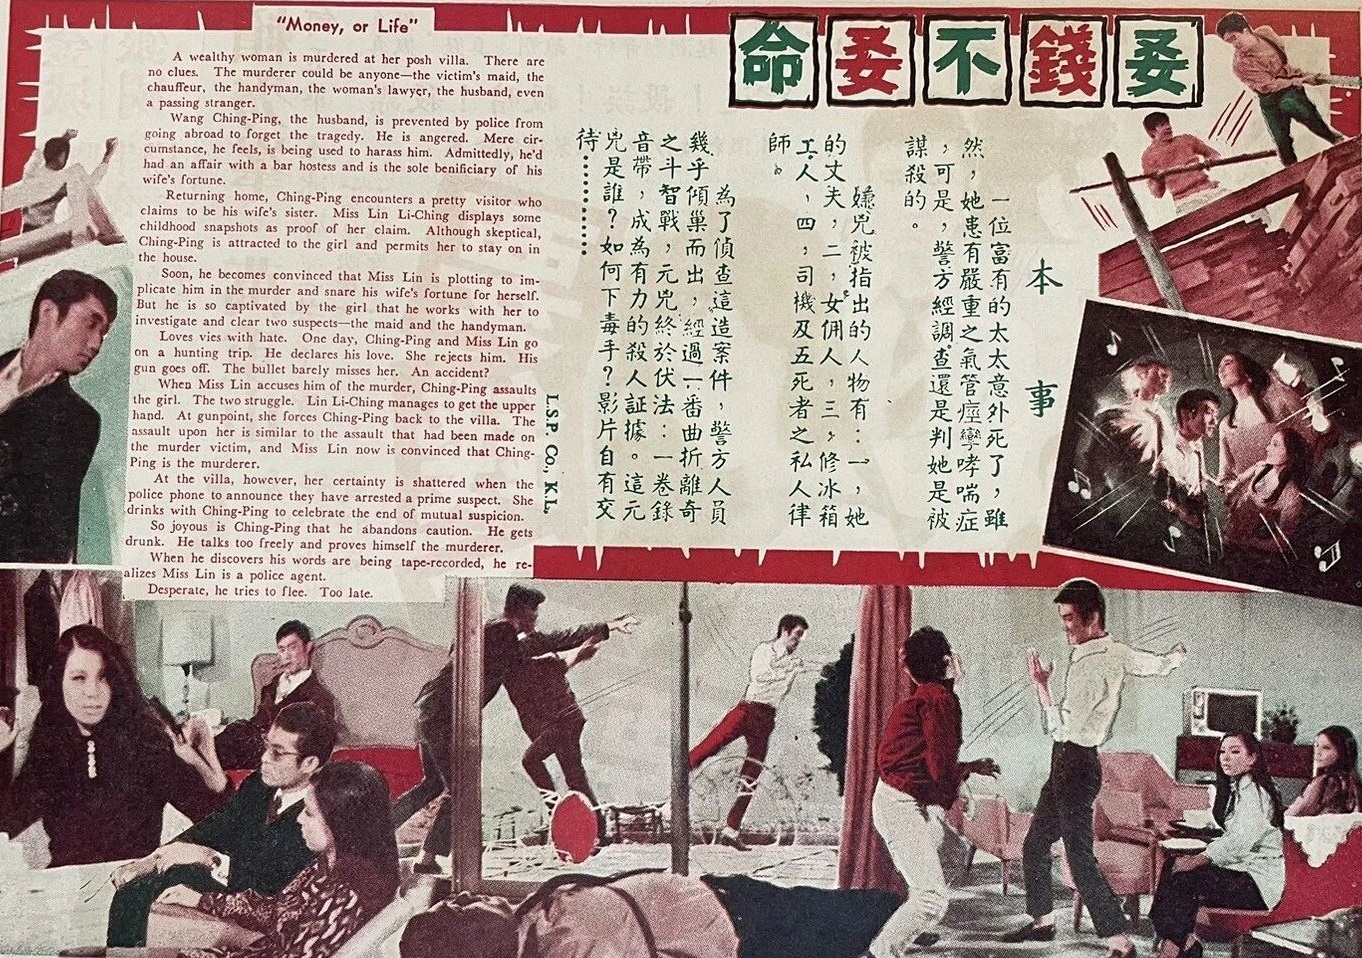 "Money, or Life"
A wealthy woman is murdered at her posh villa. There are
no clues. The murderer could be anyone—the victim's maid, the
chauffeur, the handyman, the woman's lawyer, the husband, even
a passing stranger.
Wang Ching-Ping, the husband, is prevented by police from
going abroad to forget the tragedy. He is angered. Mere cir-
cumstance, he feels, is being used to harass him. Admittedly, he'd
had an affair with a bar hostess and is the sole benificiary of his
wife's fortune.
Returning home, Ching-Ping encounters a pretty visitor who
claims to be his wife's sister. Miss Lin Li-Ching displays some
childhood snapshots as proof of her claim. Although skeptical,
Ching-Ping is attracted to the girl and permits her to stay on in
the house.
Soon, he becomes convinced that Miss Lin is plotting to im-
plicate him in the murder and snare his wife's fortune for herself.
But he is so captivated by the girl that he works with her to
investigate and clear two suspects—the maid and the handyman.
Loves vies with hate. One day, Ching-Ping and Miss Lin go
on a hunting trip. He declares his love. She rejects him. His
gun goes off. The bullet barely misses her. An accident?
When Miss Lin accuses him of the murder, Ching-Ping assaults
the girl. The two struggle. Lin Li-Ching manages to get the upper
hand. At gunpoint, she forces Ching-Ping back to the villa. The
assault upon her is similar to the assault that had been made on
the murder victim, and Miss Lin now is convinced that Ching-
Ping is the murderer.
At the villa, however, her certainty is shattered when the
police phone to announce they have arrested a prime suspect. She
drinks with Ching-Ping to celebrate the end of mutual suspicion.
So joyous is Ching-Ping that he abandons caution. He gets
drunk. He talks too freely and proves himself the murderer.
When he discovers his words are being tape-recorded, he re-
alizes Miss Lin is a police agent.
Desperate, he tries to flee. Too late.
L.S.P. Co., K.L.
要錢不要命
本事
一位富有的太太意外死了，雖
然，她患有嚴重之氣管痙攣哮喘症
，可是，警方經調查還是判她是被
謀殺的。
嫌兇被指出的人物有：一，她
的丈夫，二，女佣人，三，修冰箱
工人，四，司機及五死者之私人律
師。
為了偵查這造案件，警方人員
幾乎傾巢而出，經過一番曲折離奇
之斗智戰，元兇終於伏法：一卷錄
音帶，成為有力的殺人証據。這元
兇是誰？如何下毒手？影片自有交
待…………